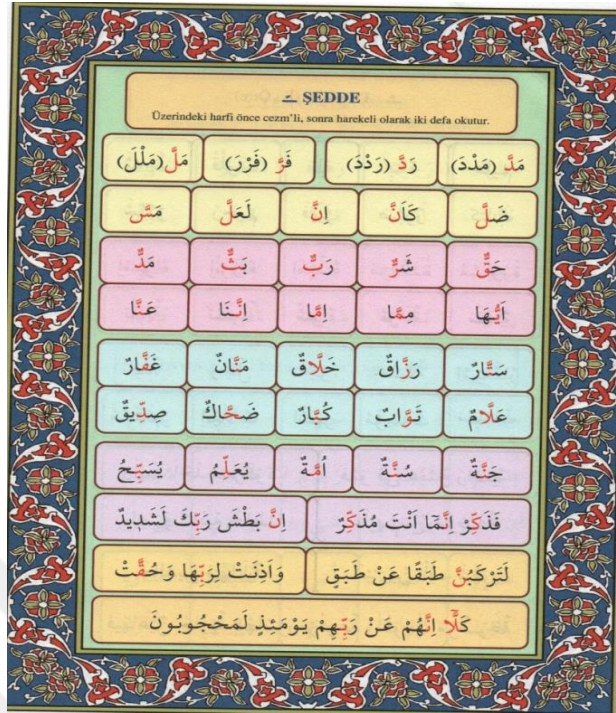 ـّ ŞEDDE
Üzerindeki harfi önce cezm'li, sonra harekeli olarak iki defa okutur.
مَدَّ (مَدْدَ) رَدَّ (رَدْدَ) فَرَّ (فَرْرَ) مَلَّ (مَلْلَ)
ضَلَّ كَاَنَّ اِنَّ لَعَلَّ مَسَّ
حَقٌّ شَرٌّ رَبٌّ بَثٌّ مَدٌّ
اَيُّهَا مِمَّا اِمَّا اِنَّنَا عَنَّا
سَتَّارٌ رَزَّاقٌ خَلَّاقٌ مَنَّانٌ غَفَّارٌ
عَلَّامٌ تَوَّابٌ كُبَّارٌ ضَحَّاكٌ صِدِّيقٌ
جَنَّةٌ سُنَّةٌ اُمَّةٌ يُعَلِّمُ يُسَبِّحُ
فَذَكِّرْ اِنَّمَا اَنْتَ مُذَكِّرٌ اِنَّ بَطْشَ رَبِّكَ لَشَدِيدٌ
لَتَرْكَبُنَّ طَبَقًا عَنْ طَبَقٍ وَاَذِنَتْ لِرَبِّهَا وَحُقَّتْ
كَلَّٓا اِنَّهُمْ عَنْ رَبِّهِمْ يَوْمَئِذٍ لَمَحْجُوبُونَ